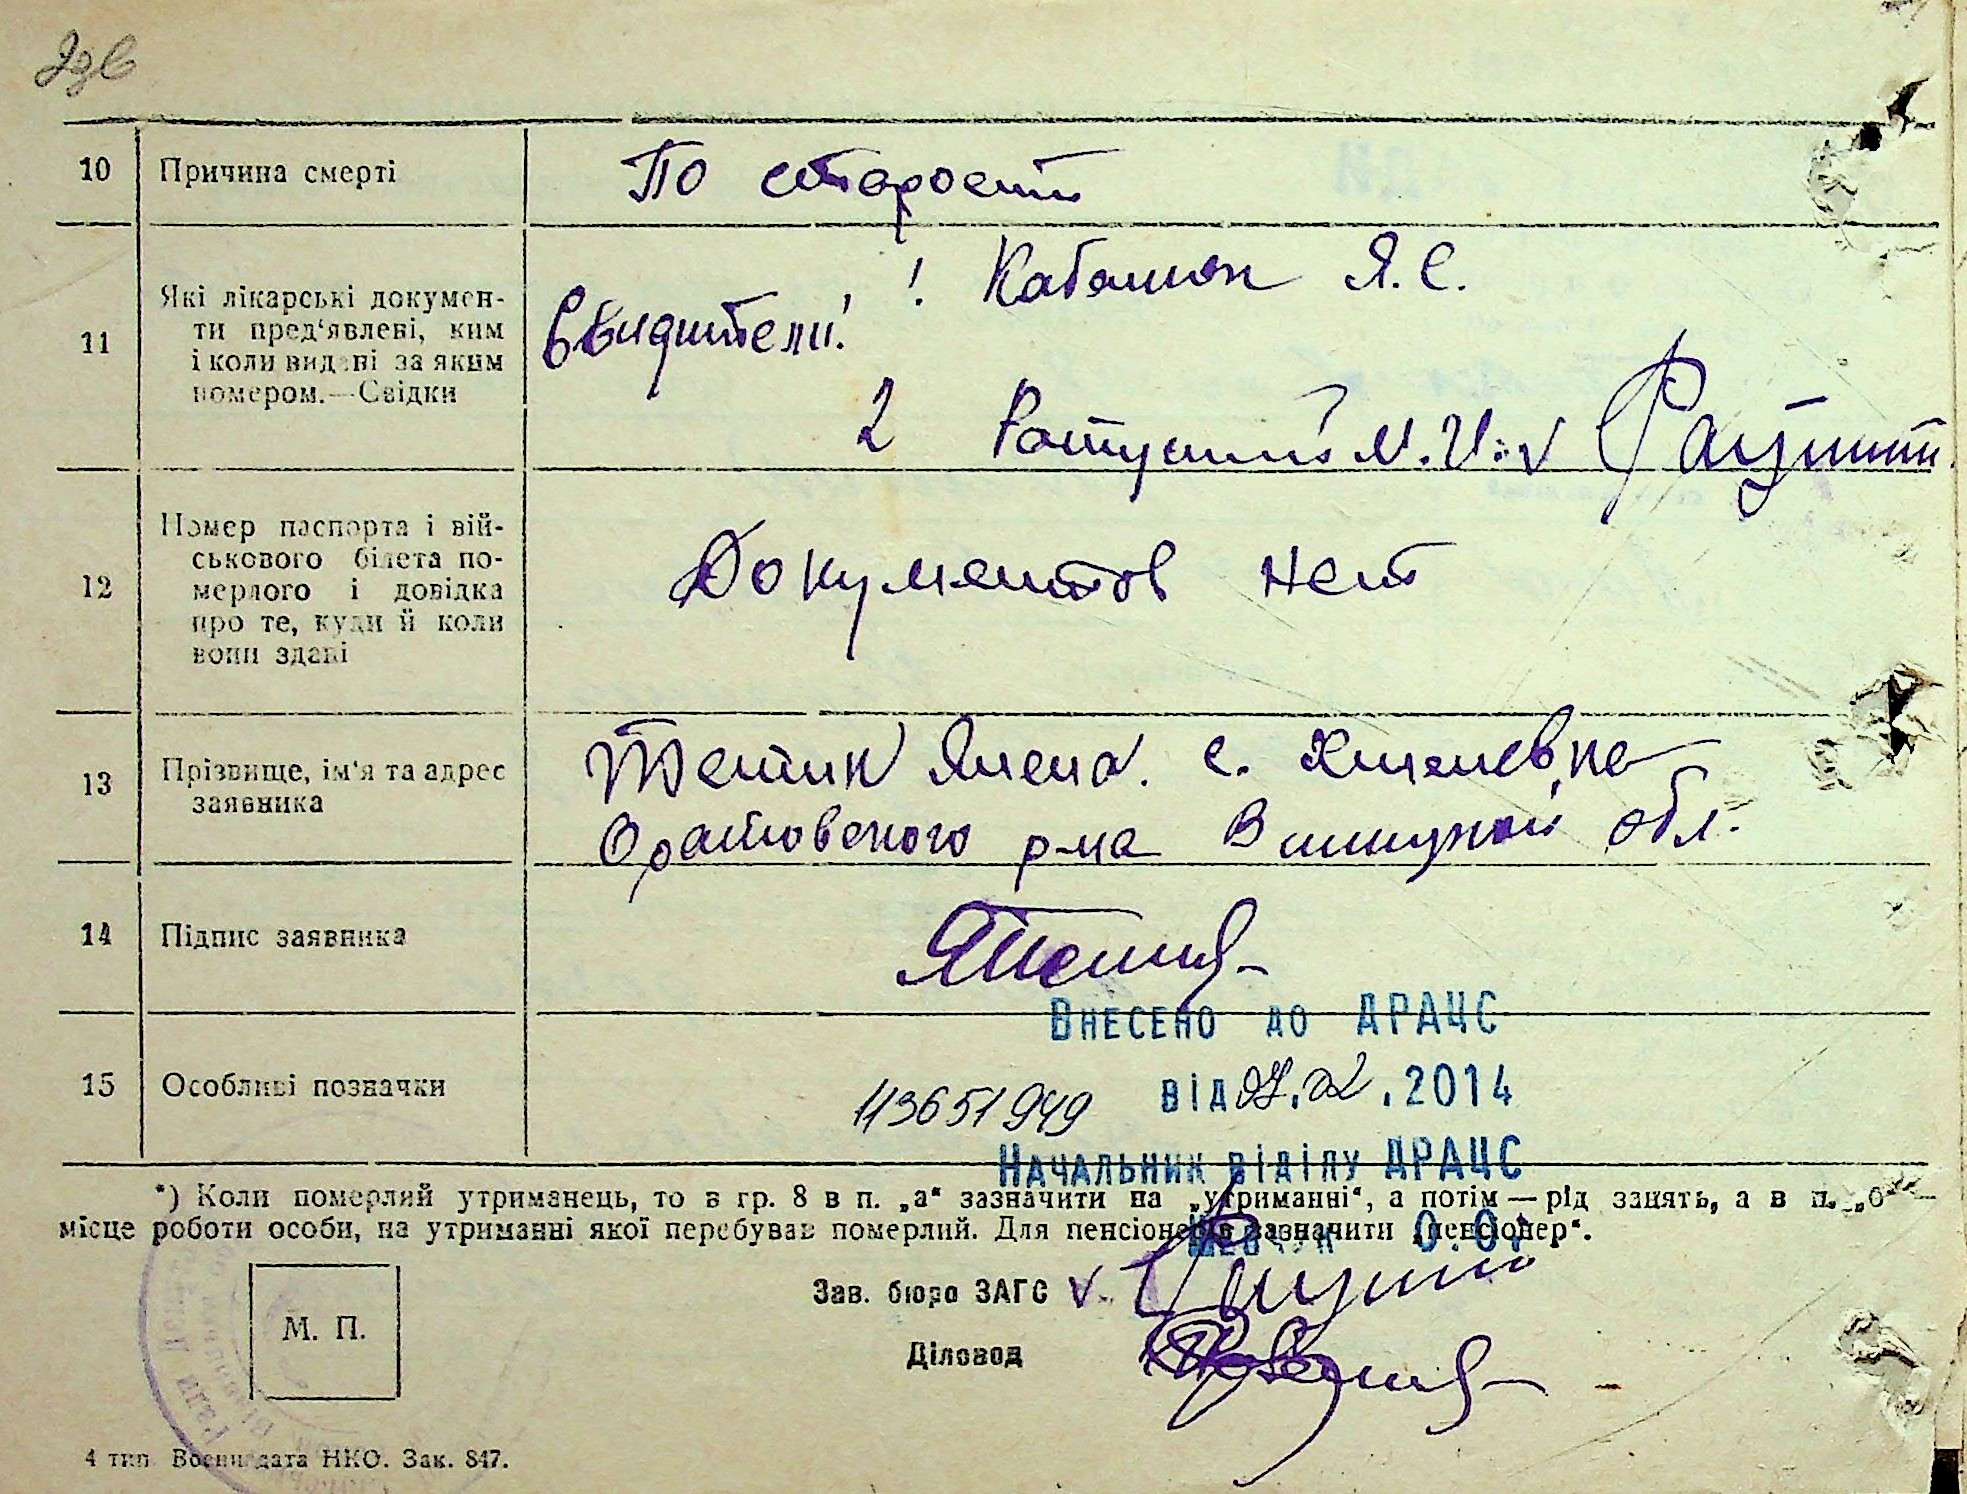 10 Причина смерті По старости
11 Які лікарські докумен-
ти пред‘явлені, ким
і коли видані за яким
номером.—Свідки
Свидители: ! Я. С.
2 М. И. v
12 Номер паспорта і вій-
ськового білета по-
мерлого і довідка
про те, куди й коли
вони здані
Документов нет
13 Прізвище, ім‘я та адрес
заявника
с.
Оратовского р-на Виницкой обл.
14 Підпис заявника
Внесено до ДРАЦС
15 Особливі позначки
113651949 від .2014
Начальник відділу ДРАЦС
*) Коли померлий утриманець, то в гр. 8 в п. „а“ зазначити на „утриманні“, а потім — рід занять, а в п. „б“ —
місце роботи особи, на утриманні якої перебував померлий. Для пенсіонерів зазначити „пенсіонер“.
Шевчук
Зав. бюро ЗАГС v.
М. П.
Діловод
4 тип Воениздата НКО. Зак. 847.